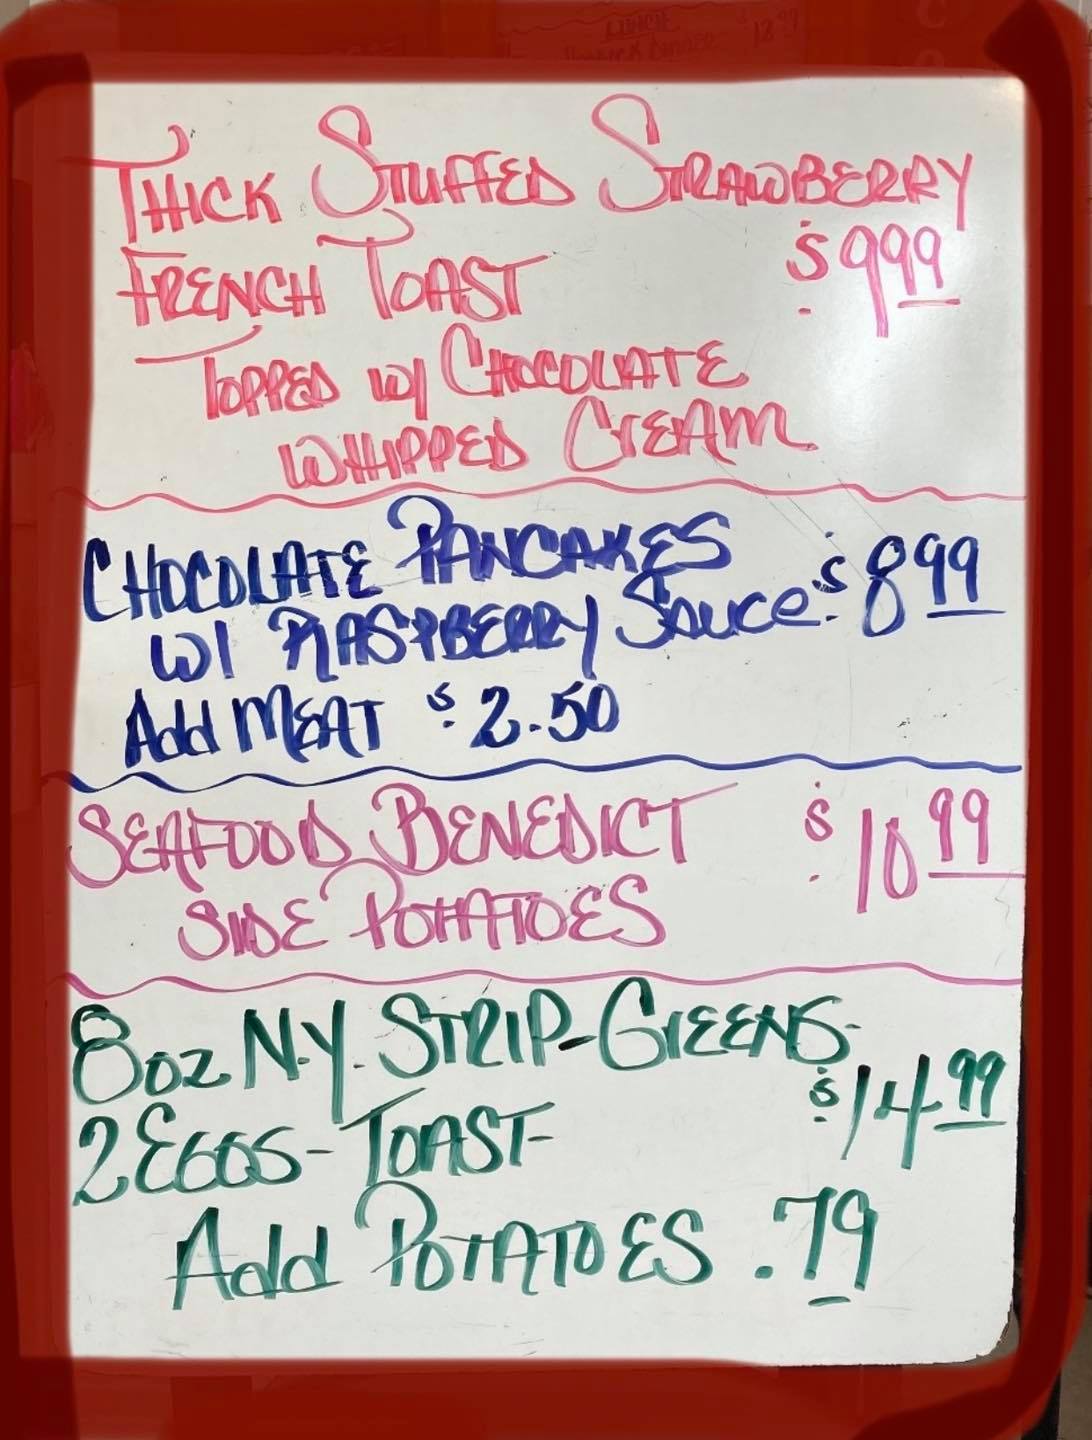 THICK STUFFED STRAWBERRY
FRENCH TOAST $9.99
TOPPED W/ CHOCOLATE
WHIPPED CREAM
CHOCOLATE PANCAKES $8.99
W/ RASPBERRY SAUCE
Add MEAT $2.50
SEAFOOD BENEDICT $10.99
SIDE POTATOES
8oz N.Y. STRIP-GREENS- $14.99
2 EGGS-TOAST-
Add POTATOES .79